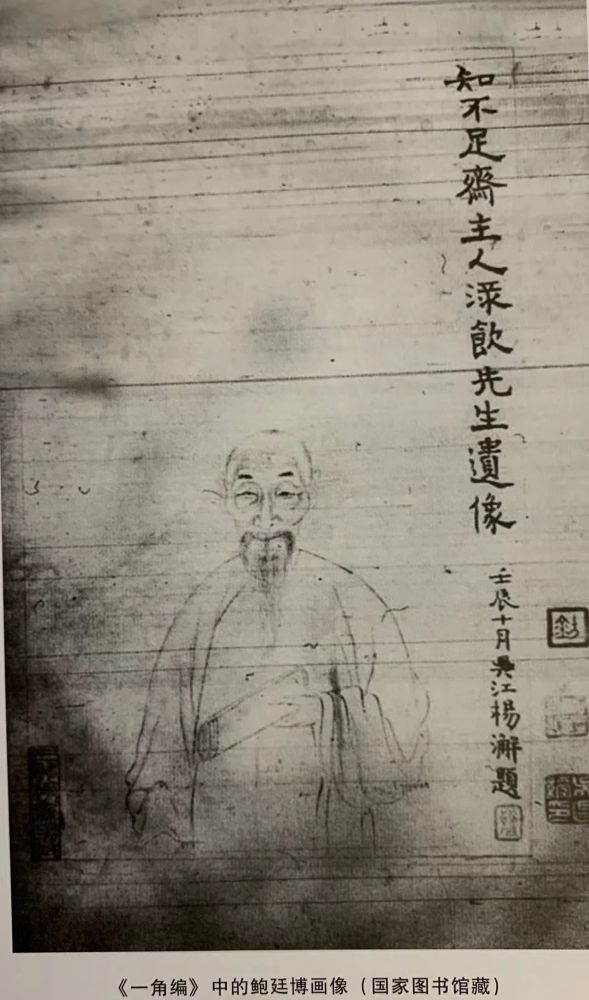 知不足齋主人渌飲先生遺像
壬辰十月吳江楊澥題
《一角编》中的鲍廷博画像（国家图书馆藏）